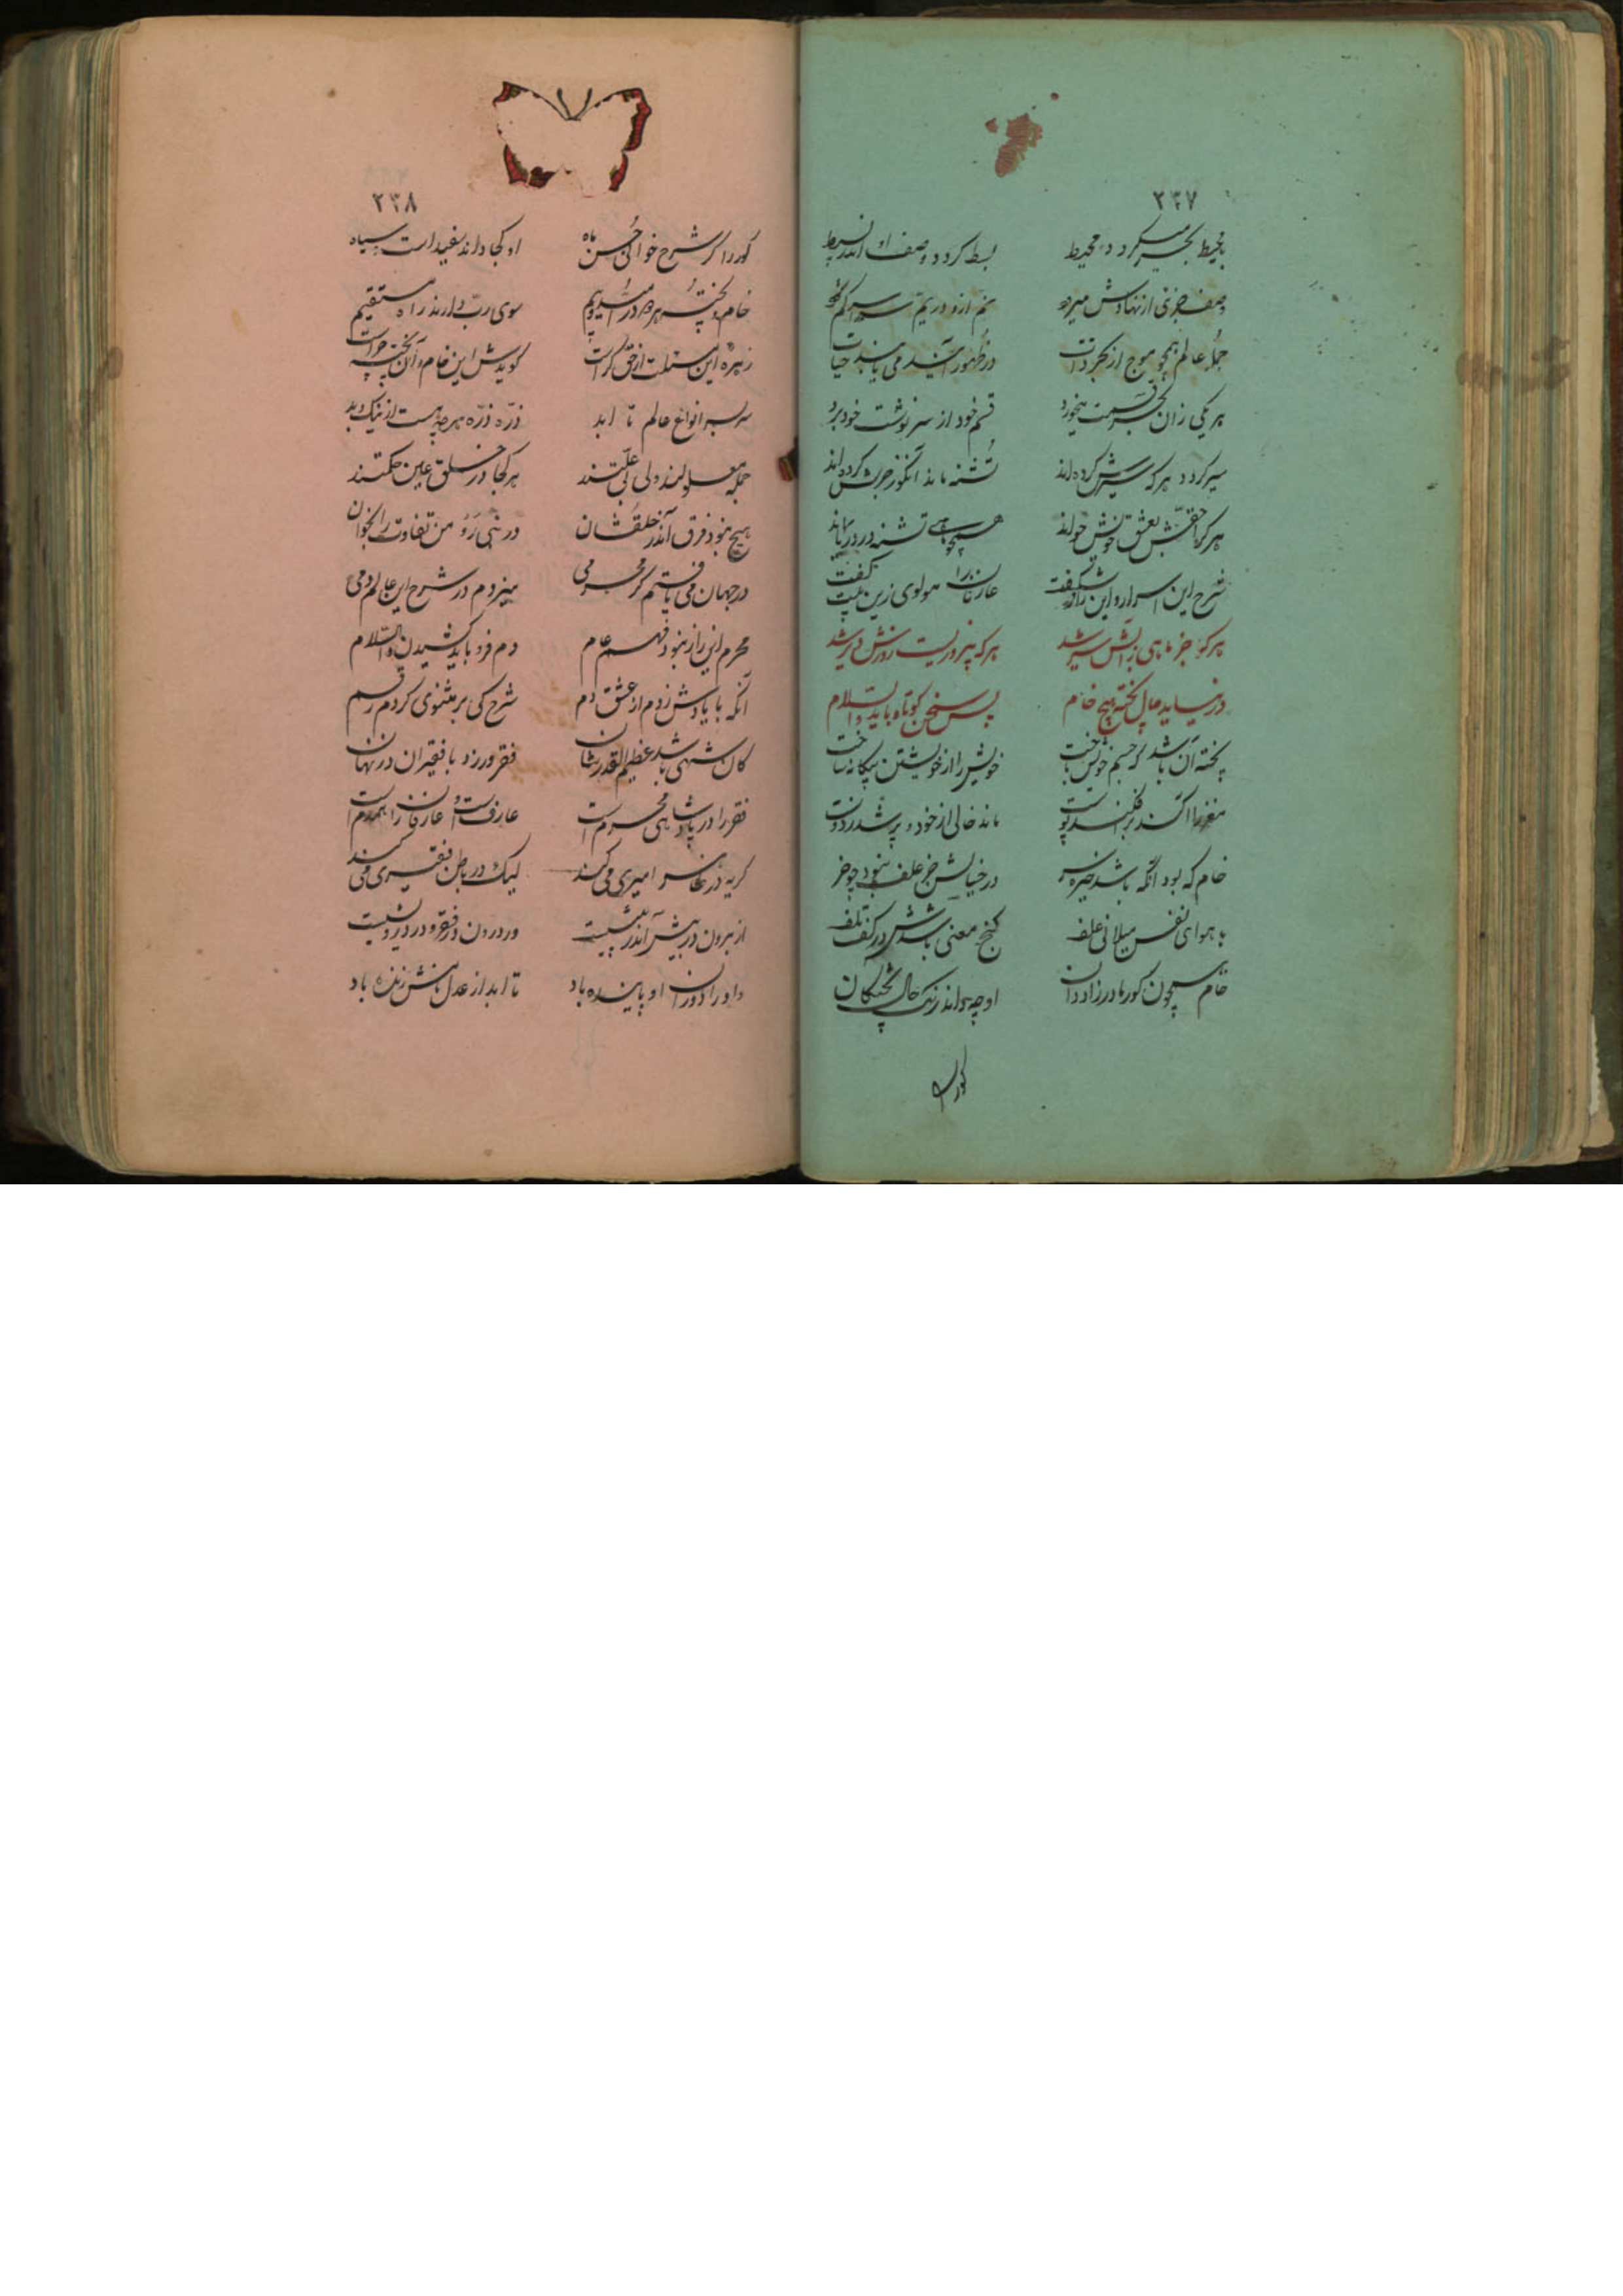 ۲۳۷
بسط کردد وصف او اندر بسیط
وصف جزئی از نهادش میرود
جمله عالم همچو موج از بحر ذات
در ظهور آیند می یابند حیات
هر یکی زان بحر قسمت میخورد
قسم خود از سرنوشت خود برد
سیر کردد هر که سیرش کرده‌اند
تشنه ماند آنکو ز حربش کرده‌اند
هر کرا حقش بعشق خویش خواند
همچو ماهی تشنه در دریا بماند
شرح این اسرار و این راز شگفت
عارفانرا مولوی زین بیت گفت
هرکه جز ماهی ز آبش سیر شد
هرکه بیروزیست روزش دیر شد
درنیابد حال پخته هیچ خام
پس سخن کوتاه باید والسلام
پخته آن باشد که جسم خویش باخت
خویش را از خویشتن بیگانه ساخت
مغز را آکند و بر افکند پوست
ماند خالی از خود و پر شد ز دوست
خام که بود آنکه باشد خیره سر
در خیالش جز علف نبود چو خر
با هوای نفس میلانی علف
گنج معنی باشدش در کف تلف
خام همچون کور مادرزاد دان
او چه داند رنگ حال پختگان
کور را
۲۳۸
کور را گر شرح خوانی حسن ماه
او کجا داند سفید است یا سیاه
خام و پخته هر دو در امید و بیم
سوی رب دارند راه مستقیم
گویدش این خام و آن پخته چراست
سربسر انواع عالم تا ابد
ذرّه ذرّه هرچه هست از نیک و بد
جمله معلولند ولی بی علتند
هر کجا در خلق عین حکمتند
هیچ نبود فرق اندر خلقشان
در نبی رو من تفاوت را بخوان
در جهان می یافتم گر محرمی
میزدم در شرح این عالم دمی
محرم این راز نبود فهم عام
دم فرو باید کشیدن والسلام
آنکه با یادش زدم از عشق دم
شرح کی بر مثنوی کردم رقم
کان شهی باشد عظیم القدر و شان
فقر ورزد با فقیران در نهان
فقر را در پادشاهی محرم است
عارفست و عارفانرا همدم است
گرچه در ظاهر امیری می کند
لیک در باطن فقیری می کند
از برون درپیش اندر بیش نیست
ور درون در فقر و در درویشیست
داور را دوران او پاینده باد
تا ابد از عدل دانش زنده باد